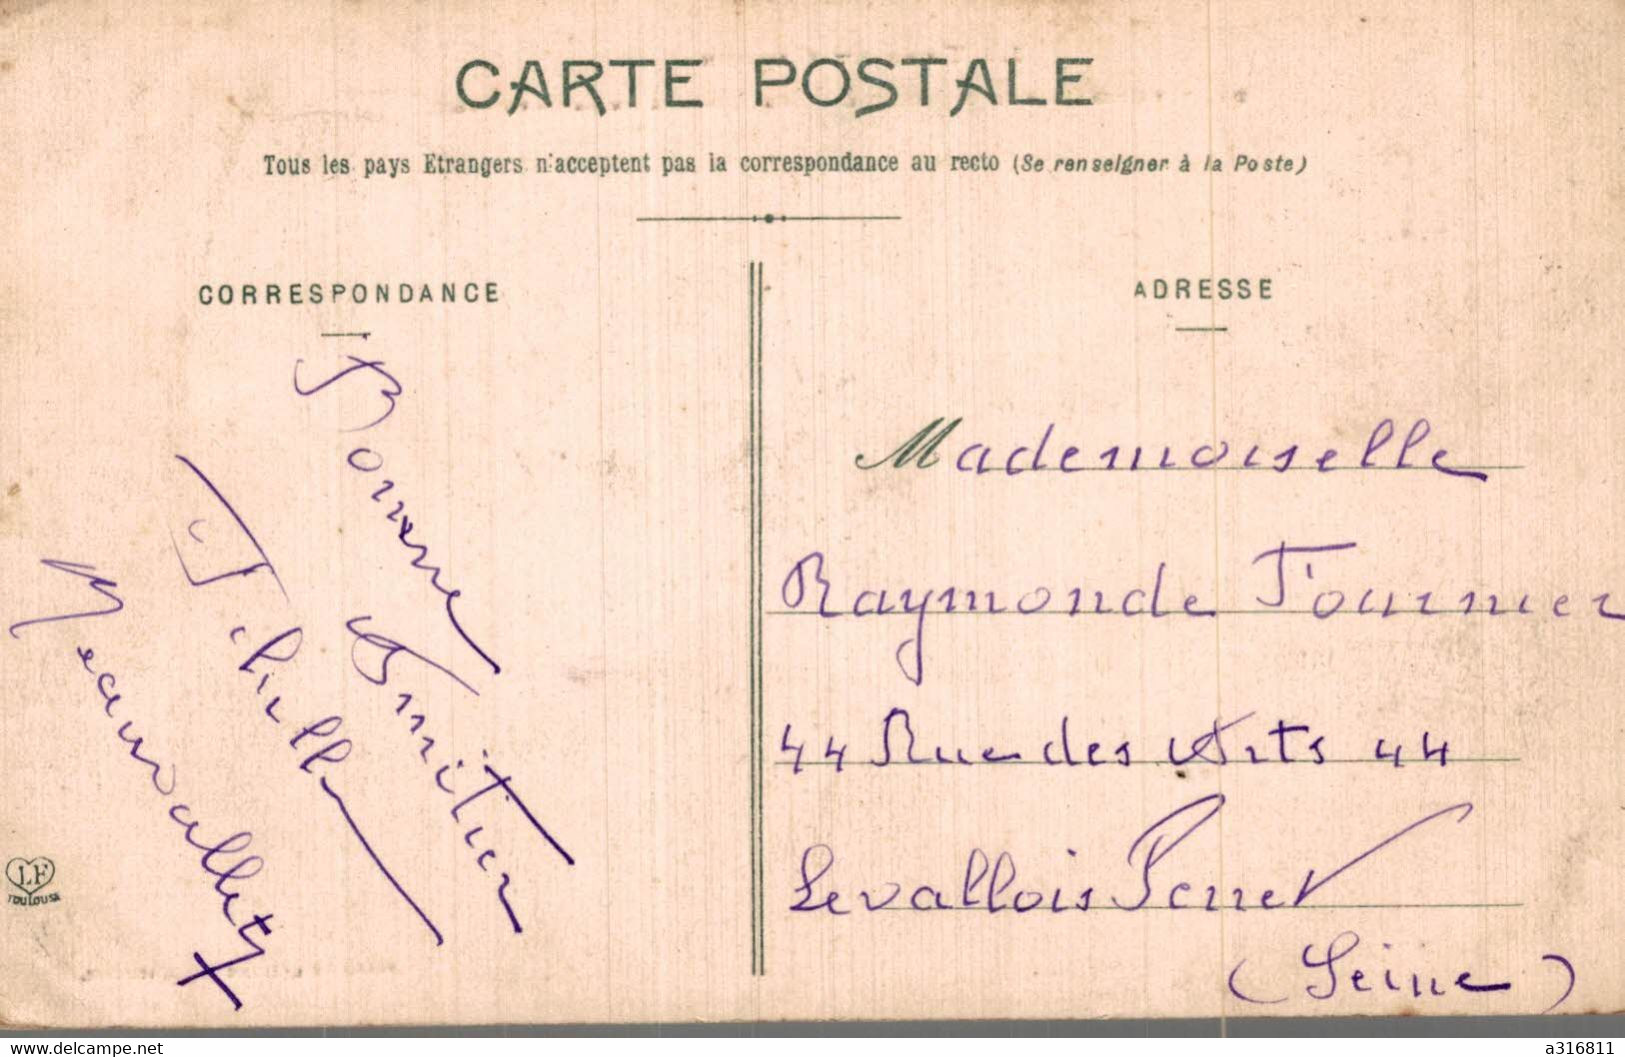 CARTE POSTALE
Tous les pays Etrangers n'acceptent pas la correspondance au recto (Se renseigner à la Poste)
CORRESPONDANCE
Bonne
Amitier
ADRESSE
Mademoiselle
Raymonde Fournier
44 Rue des Arts 44
Levallois Perret
(Seine)
LF
TOULOUSE
www.delcampe.net
a316811